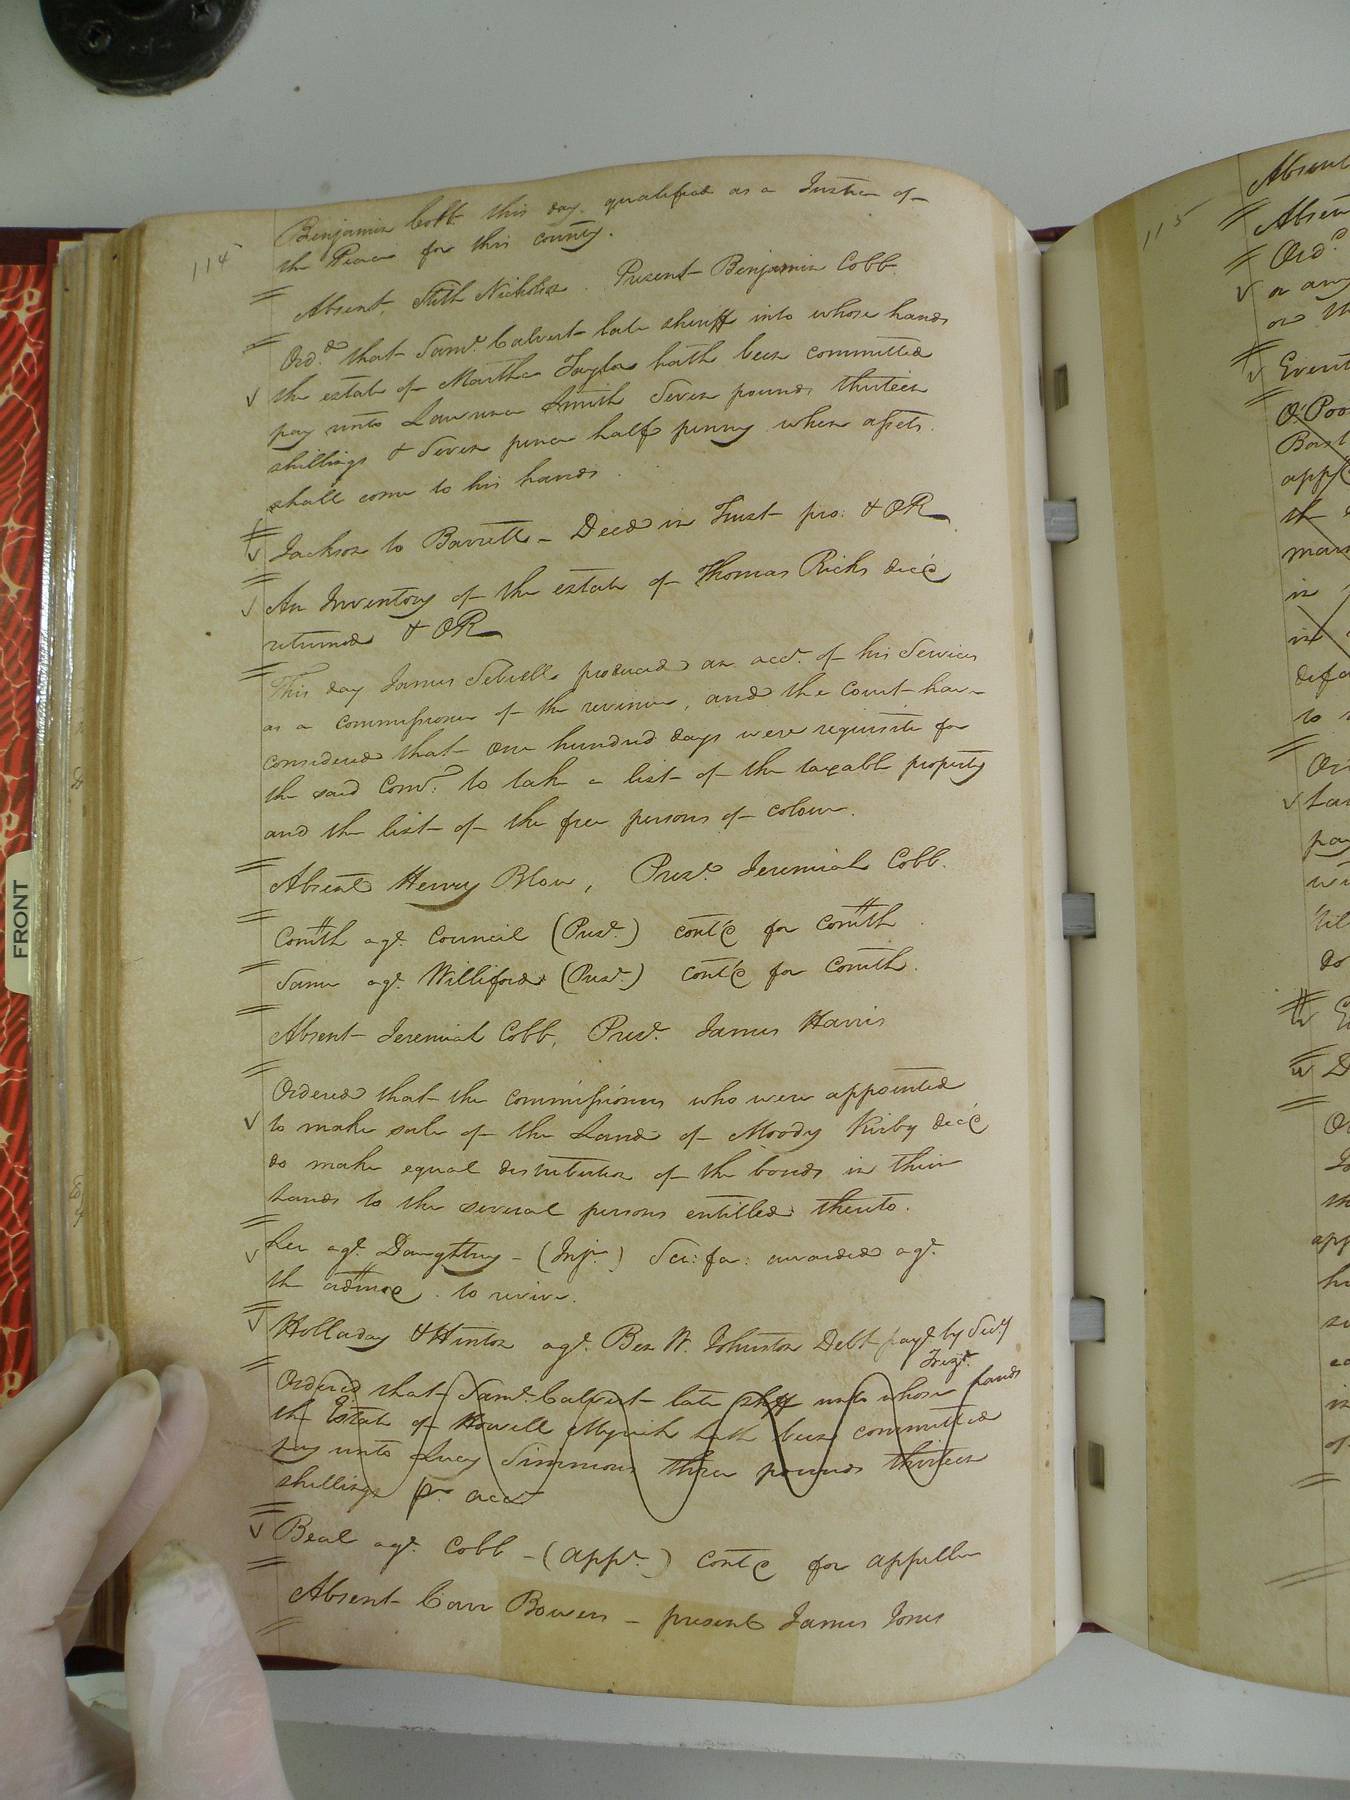 114
Benjamin Cobb this day qualified as a Justice of
the Peace for this county.
Absent, Stith Nicholson. Present Benjamin Cobb
Ord.d that Saml. Calvert late sheriff into whose hands
the estate of Martha Taylor hath been committed
pay unto Lawrence Smith Seven pounds, thirteen
shillings & Seven pence half penny when assets.
shall come to his hands.
Jackson to Barrett - Deed in Trust pro: & OR
An Inventory of the estate of Thomas Ricks dec'd
returned & OR
This day James Sebrell produced an acct. of his Services
as a commissioner of the revenue, and the Court have
considered that one hundred days were requisite for
the said Comr. to take a list of the taxable property
and the list of the free persons of colour.
Absent Henry Blow, Prest. Jeremiah Cobb.
Comth agt. Council (Prest.) contd for comth.
Same agt. Williford (Prest.) contd for comth.
Absent Jeremiah Cobb, Prest. James Harris
Ordered that the commissioners who were appointed
to make sale of the Land of Moody Kirby dec'd
do make equal distribution of the bonds in their
hands to the several persons entitled thereto.
Lee agt. Daughtry - (Injn.) Sci: fa: awarded agt.
the to revive.
Holladay & Hinton agt. Ben W. Johnston Debt by
Ordered that Saml. Calvert late shff unto whose hands
the Estate of Howell Myrick hath been committed
pay unto Lucy Simmons three pounds thirteen
shillings pr. acct
Beal agt. Cobb - (appt.) contd for appellee
Absent Carr Bowers - present James Jones
115
Absent
Absen
Ord.d
or any
Event
O'Poo
to
do
FRONT